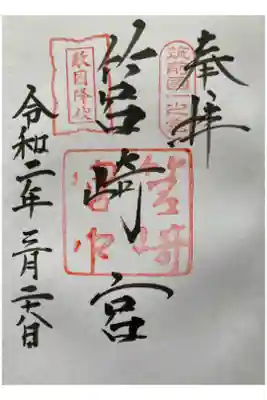 奉拝
筑前國一之宮
筥崎宮
筥崎宮印
敵國降伏
令和二年三月二十八日